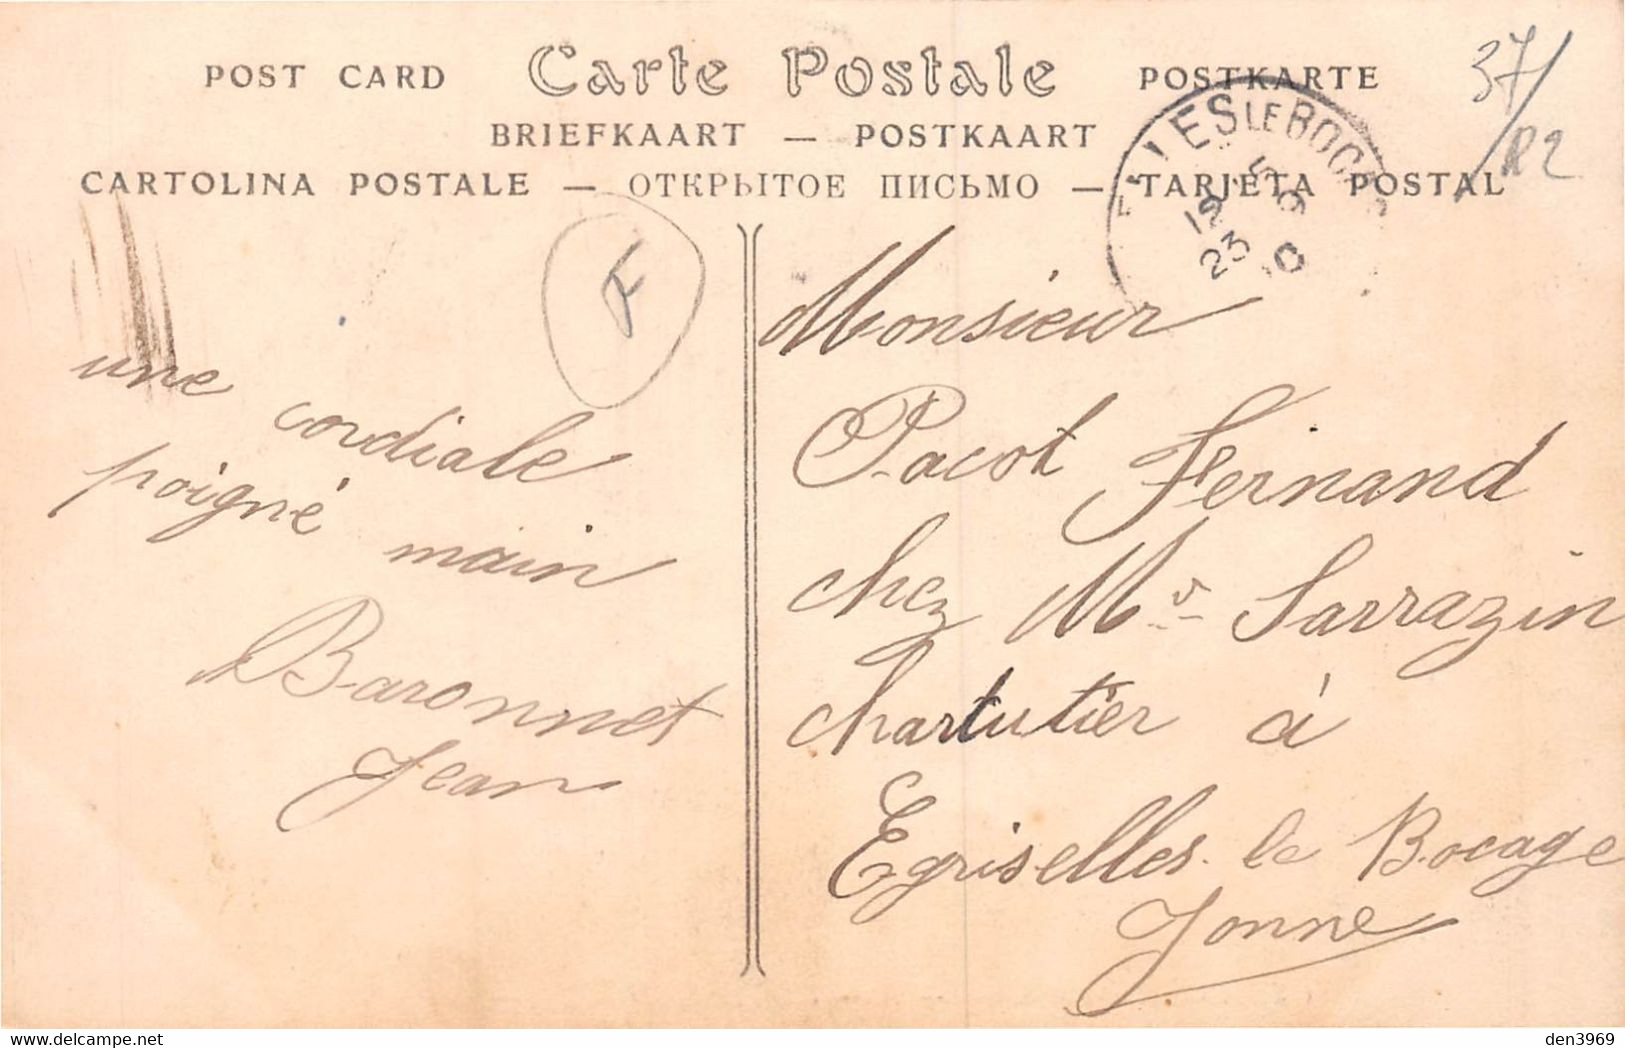 POST CARD Carte Postale POSTKARTE
BRIEFKAART — POSTKAART
CARTOLINA POSTALE — ОТКРЫТОЕ ПИСЬМО — TARJETA POSTAL
37/
R2
LE BOCA
12
23
F
une cordiale
poigné main
Baronnet
Jean
Monsieur
Pacot Fernand
chez Mr Sarrazin
chartutier à
Egriselles le Bocage
Yonne
delcampe.net
den3969